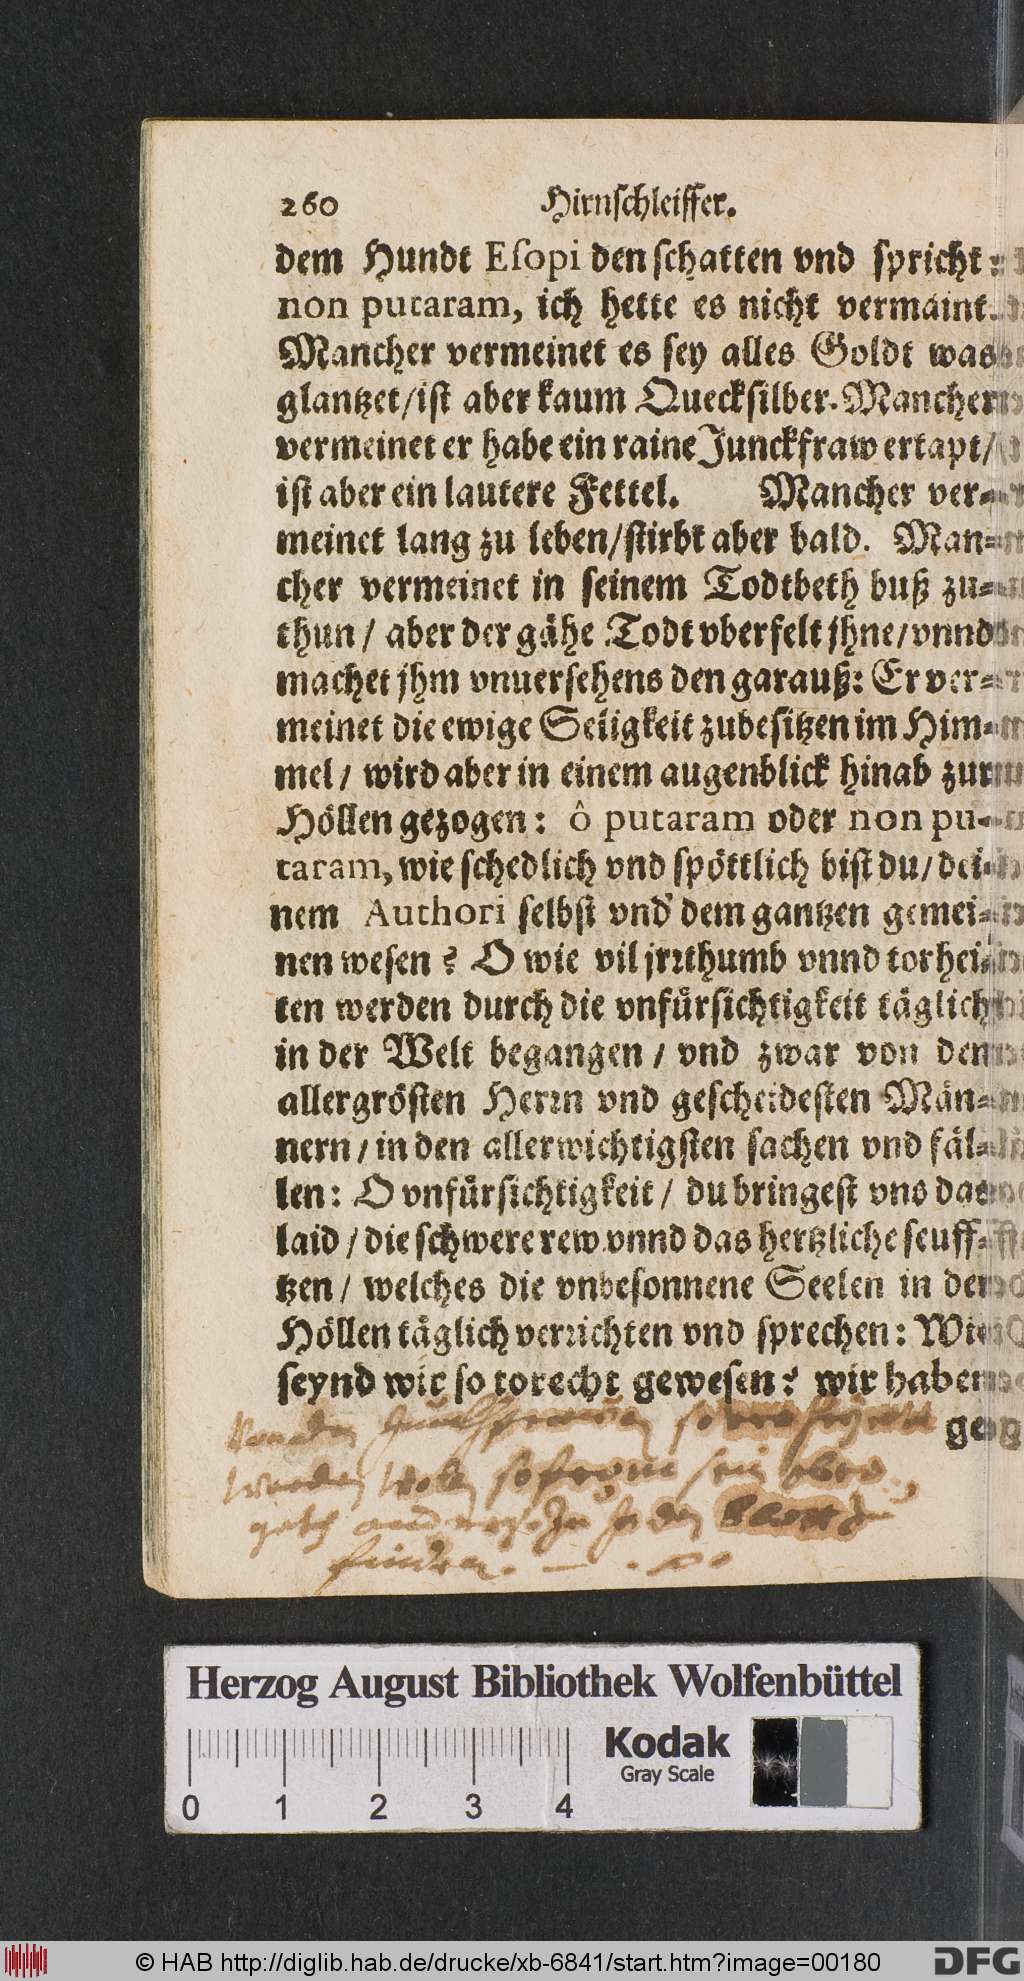 260 Hirnſchleiffer.
dem Hundt Eſopi den ſchatten vnd ſpricht:
non putaram, ich hette es nicht vermaint.
Mancher vermeinet es ſey alles Goldt was
glantzet/iſt aber kaum Queckſilber. Mancher
vermeinet er habe ein raine Junckfraw ertapt/
iſt aber ein lautere Fettel. Mancher ver-
meinet lang zu leben/ſtirbt aber bald. Man-
cher vermeinet in ſeinem Todtbeth buß zu-
thun / aber der gähe Todt vberfelt jhne/vnnd
machet jhm vnuerſehens den garauß: Er ver-
meinet die ewige Seligkeit zubeſitzen im Him-
mel / wird aber in einem augenblick hinab zur
Höllen gezogen: ô putaram oder non pu-
taram, wie ſchedlich vnd ſpöttlich biſt du/ dei-
nem Authori ſelbſt vnd dem gantzen gemei-
nen weſen? O wie vil jrꝛthumb vnnd torhei-
ten werden durch die vnfürſichtigkeit täglich
in der Welt begangen / vnd zwar von den
allergröſten Herꝛn vnd geſcheideſten Män-
nern / in den allerwichtigſten ſachen vnd fäl-
len: O vnfürſichtigkeit / du bringeſt vns das
laid / die ſchwere rew vnnd das hertzliche ſeuff-
tzen / welches die vnbeſonnene Seelen in der
Höllen täglich verꝛichten vnd ſprechen: Wie
ſeynd wir ſo torecht geweſen? wir haben
ge-
finden.
Herzog August Bibliothek Wolfenbüttel
Kodak
Gray Scale
0 1 2 3 4
© HAB http://diglib.hab.de/drucke/xb-6841/start.htm?image=00180
DFG